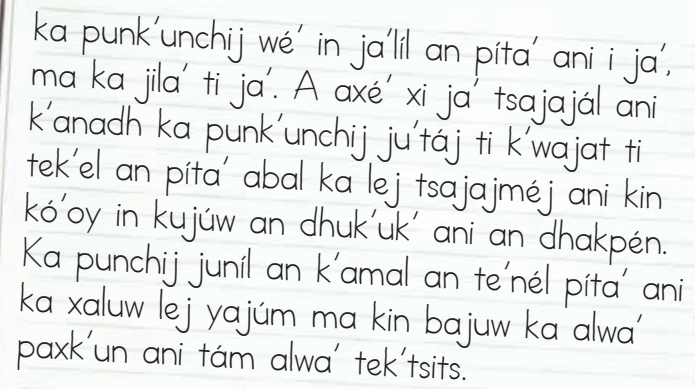 ka punk'unchij wé' in ja'líl an píta' ani i ja',
ma ka jila' ti ja'. A axé' xi ja' tsajajál ani
k'anadh ka punk'unchij ju'táj ti k'wajat ti
tek'el an píta' abal ka lej tsajajméj ani kin
kó'oy in kujúw an dhuk'uk' ani an dhakpén.
Ka punchij juníl an k'amal an te'nél píta' ani
ka xaluw lej yajúm ma kin bajuw ka alwa'
paxk'un ani tám alwa' tek'tsits.